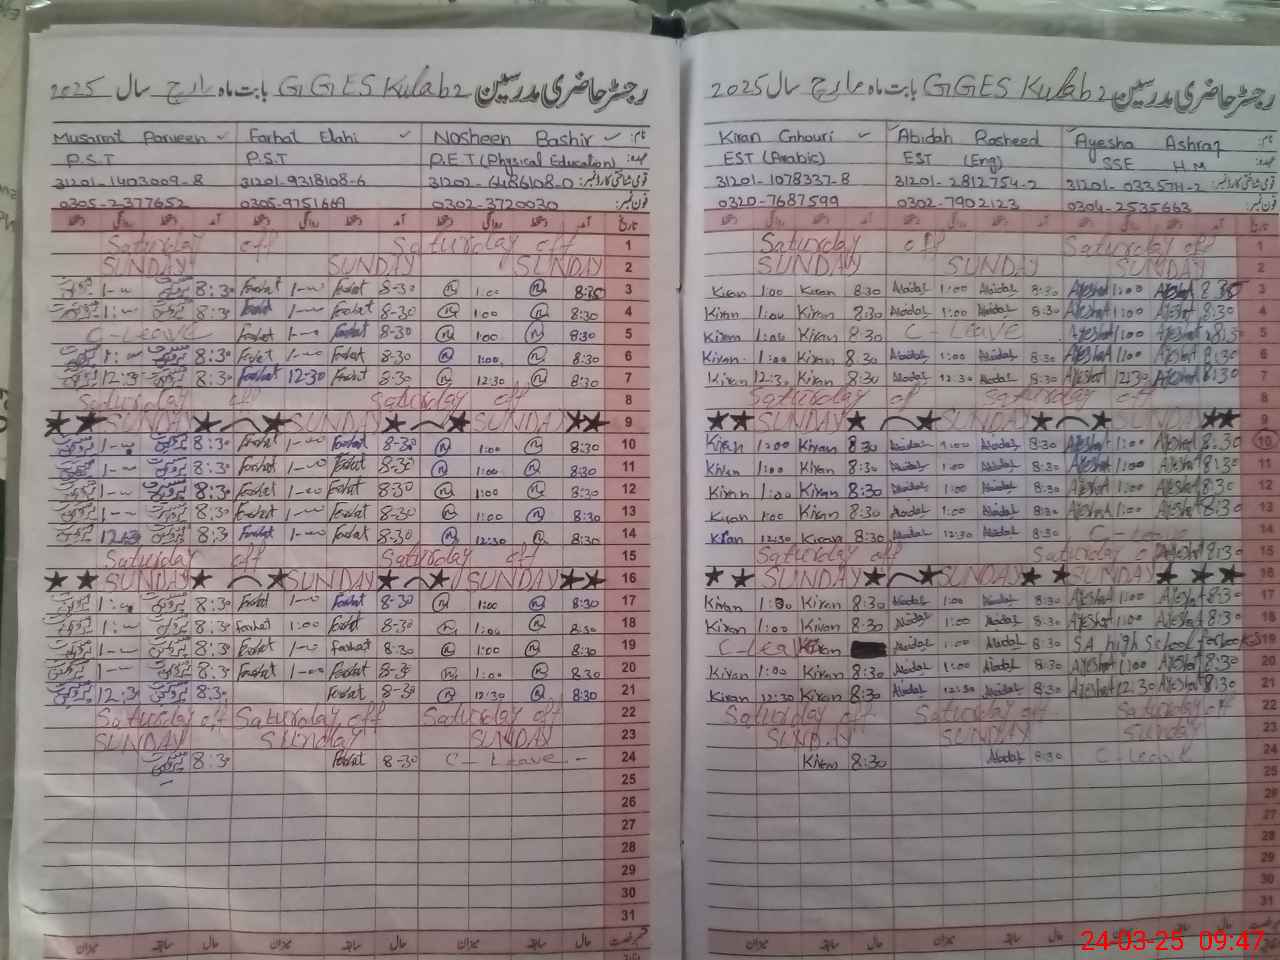 رجسٹر حاضری مدرسین GGES Kulab 2 بابت ماہ مارچ سال 2025
Musarrat Parveen Farhat Elahi Nosheen Bashir نام:
P.S.T P.S.T P.E.T (Physical Education) عہدہ:
31201-1403009-8 31201-9318108-6 31202-6486108-0 قومی شناختی کارڈ نمبر:
0305-2377652 0305-9751669 0302-3720030 فون نمبر:
دستخط روانگی دستخط آمد دستخط روانگی دستخط آمد دستخط روانگی دستخط آمد تاریخ
Saturday off Saturday off 1
SUNDAY SUNDAY SUNDAY 2
8:30 Farhat Farhat 8-30 1:00 8:30 3
8:30 Farhat Farhat 8-30 1:00 8:30 4
C-Leave Farhat Farhat 8-30 1:00 8:30 5
8:30 Farhat Farhat 8-30 1:00 8:30 6
12:30 8:30 Farhat 12-30 Farhat 8-30 12:30 8:30 7
Saturday off Saturday off 8
SUNDAY SUNDAY SUNDAY 9
8:30 Farhat Farhat 8-30 1:00 8:30 10
8:30 Farhat Farhat 8-30 1:00 8:30 11
8:30 Farhat Farhat 8-30 1:00 8:30 12
8:30 Farhat Farhat 8-30 1:00 8:30 13
12:30 8:30 Farhat Farhat 8-30 12:30 8:30 14
Saturday off Saturday off 15
SUNDAY SUNDAY SUNDAY 16
8:30 Farhat Farhat 8-30 1:00 8:30 17
8:30 Farhat 1:00 Farhat 8-30 1:00 8:30 18
8:30 Farhat Farhat 8-30 1:00 8:30 19
8:30 Farhat Farhat 8-30 1:00 8:30 20
12:30 8:30 Farhat 8-30 12:30 8:30 21
Saturday off Saturday off Saturday off 22
SUNDAY Sunday SUNDAY 23
8:30 Farhat 8-30 C-Leave 24
25
26
27
28
29
30
31
میزان سابقہ حال میزان سابقہ حال میزان سابقہ حال
رجسٹر حاضری مدرسین GGES Kulab 2 بابت ماہ مارچ سال 2025
Kiran Ghouri Abidah Rasheed Ayesha Ashraf نام:
EST (Arabic) EST (Eng) SSE H.M عہدہ:
31201-1078337-8 31201-2812754-2 قومی شناختی کارڈ نمبر:
0320-7687599 0302-7902123 0304-2535663 فون نمبر:
دستخط روانگی دستخط آمد دستخط روانگی دستخط آمد دستخط روانگی دستخط آمد تاریخ
Saturday off Saturday off 1
SUNDAY SUNDAY SUNDAY 2
Kiran 1:00 Kiran 8:30 Abidah 1:00 Abidah 8:30 Ayesha 1:00 Ayesha 3
Kiran 1:00 Kiran 8:30 Abidah 1:00 Abidah 8:30 Ayesha 1:00 Ayesha 8:30 4
Kiran 1:00 Kiran 8:30 C-Leave Ayesha 1:00 Ayesha 5
Kiran 1:00 Kiran 8:30 Abidah 1:00 Abidah 8:30 Ayesha 1:00 Ayesha 8:30 6
Kiran 12:30 Kiran 8:30 Abidah 12:30 Abidah 8:30 Ayesha 12:30 Ayesha 8:30 7
Saturday off Saturday off 8
SUNDAY SUNDAY SUNDAY 9
Kiran 1:00 Kiran 8:30 Abidah 1:00 Abidah 8:30 Ayesha 1:00 Ayesha 8:30 10
Kiran 1:00 Kiran 8:30 Abidah 1:00 Abidah 8:30 Ayesha 1:00 Ayesha 8:30 11
Kiran 1:00 Kiran 8:30 Abidah 1:00 Abidah 8:30 Ayesha 1:00 Ayesha 8:30 12
Kiran 1:00 Kiran 8:30 Abidah 1:00 Abidah 8:30 Ayesha 1:00 Ayesha 8:30 13
Kiran 12:30 Kiran 8:30 Abidah 12:30 Abidah 8:30 C-Leave 14
Saturday off Saturday Ayesha 8:30 15
SUNDAY SUNDAY SUNDAY 16
Kiran 1:00 Kiran 8:30 Abidah 1:00 Abidah 8:30 Ayesha 1:00 Ayesha 8:30 17
Kiran 1:00 Kiran 8:30 Abidah 1:00 Abidah 8:30 Ayesha 1:00 Ayesha 8:30 18
C-Leave Kiran Abidah 1:00 Abidah 8:30 S.A high School for books 19
Kiran 1:00 Kiran 8:30 Abidah 1:00 Abidah 8:30 Ayesha 1:00 Ayesha 8:30 20
Kiran 12:30 Kiran 8:30 Abidah 12:30 Abidah 8:30 Ayesha 12:30 Ayesha 8:30 21
Saturday off Saturday off Saturday off 22
SUNDAY SUNDAY Sunday 23
Kiran 8:30 Abidah 8:30 C-Leave 24
25
26
27
28
29
30
31
میزان سابقہ حال میزان سابقہ حال میزان سابقہ حال
24-03-25 09:47